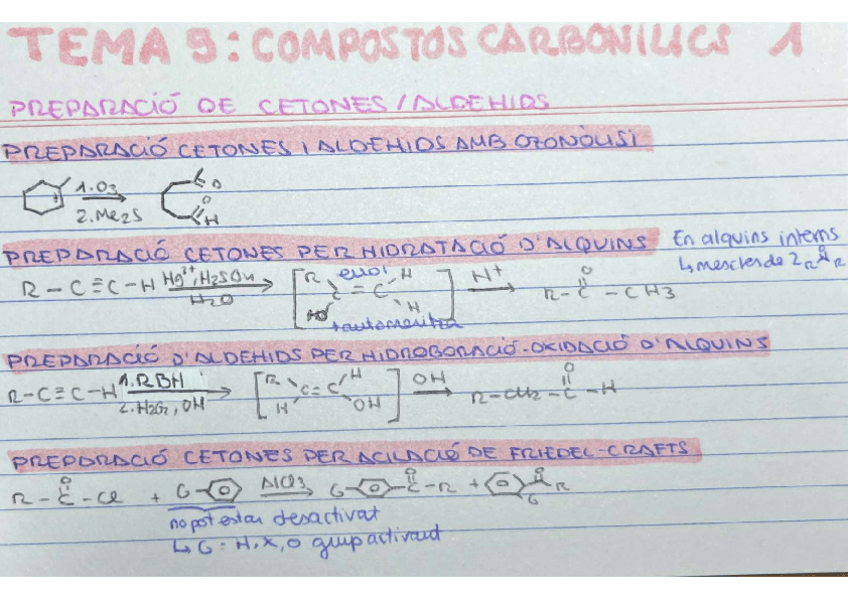 TEMA 9: COMPOSTOS CARBONÍLICS 1
PREPARACIÓ DE CETONES/ALDEHIDS
PREPARACIÓ CETONES I ALDEHIDS AMB OZONÒLISI
1. O3
2. Me2S
O
O
H
PREPARACIÓ CETONES PER HIDRATACIÓ D'ALQUINS
En alquins interns
↳ mescles de 2 R O R
R - C ≡ C - H Hg2+, H2SO4 H2O → [R HO C = C H H] H+ → R - C - CH3 O
enol
tautomeritza
PREPARACIÓ D'ALDEHIDS PER HIDROBORACIÓ-OXIDACIÓ D'ALQUINS
R - C ≡ C - H 1. R2BH 2. H2O2, OH → [R H C = C H OH] OH → R - CH2 - C - H O
PREPARACIÓ CETONES PER ACILACIÓ DE FRIEDEL-CRAFTS
R - C - Cl + G AlCl3 → G C - R + G R O
no pot estar desactivat
↳ G = H, X, o grup activant